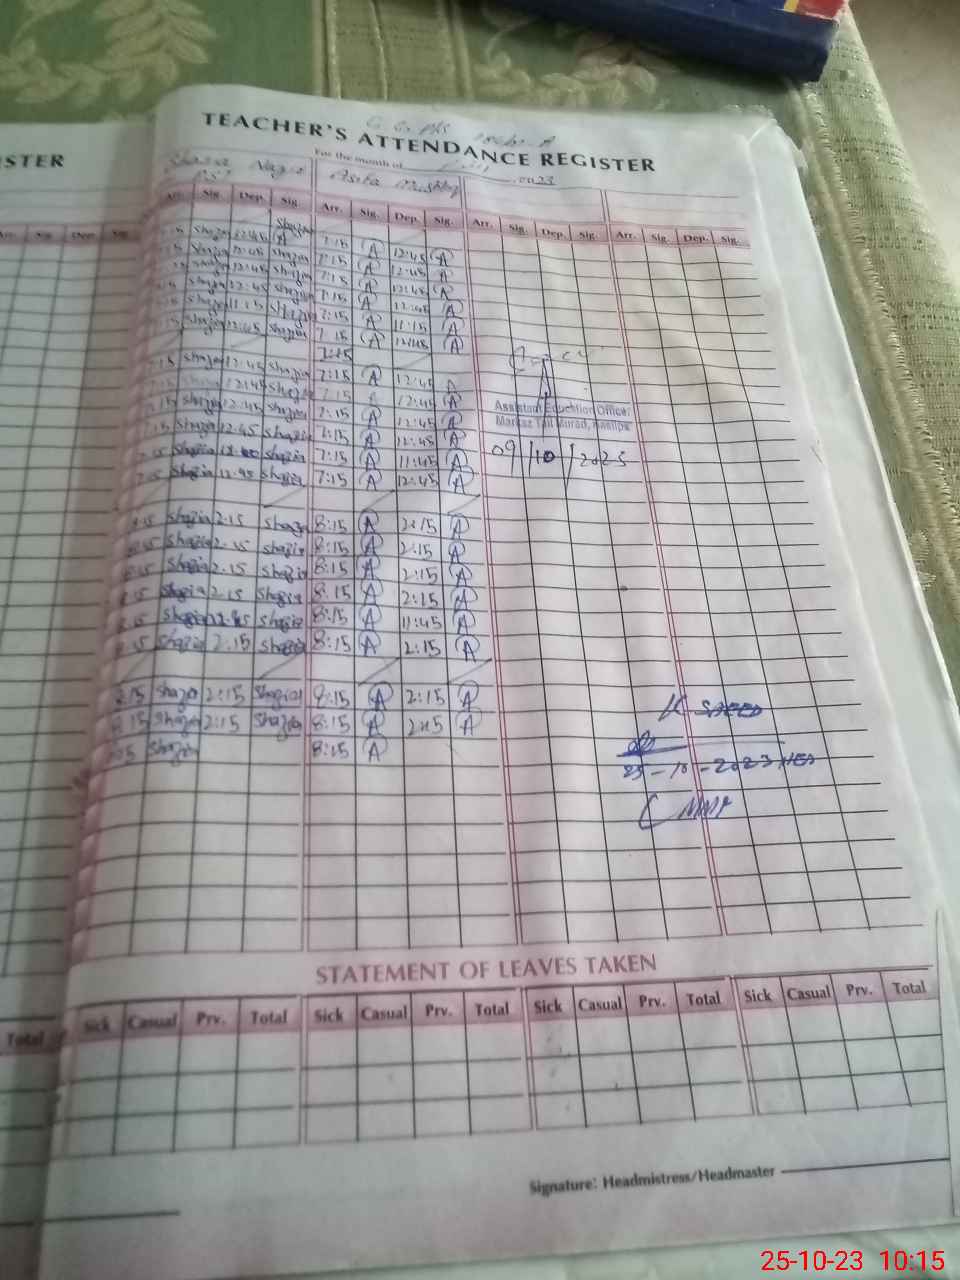 TEACHER'S ATTENDANCE REGISTER
STER
For the month of 2023
Shazia Nazir Asifa Mushtaq
PST
Arr. Sig. Dep. Sig. Arr. Sig. Dep. Sig. Arr. Sig. Dep. Sig. Arr. Sig. Dep. Sig.
Shazia 12:45 Shazia 7:15 A 12:45 A
Shazia 12:45 Shazia 7:15 A 12:45 A
Shazia 12:45 Shazia 7:15 A 12:45 A
Shazia 12:45 Shazia 7:15 A 12:45 A
Shazia 11:15 Shazia 7:15 A 11:15 A
Shazia 12:45 Shazia 7:15 A 12:45 A
7:15
7:15 Shazia 12:45 Shazia 7:15 A 12:45 A
12:45 Shazia 7:15 A 12:45 A
7:15 Shazia 12:45 Shazia 7:15 A 12:45 A
7:15 Shazia 12:45 Shazia 7:15 A 12:45 A
Shazia Shazia 7:15 A 11:45 A
Shazia 12:45 Shazia 7:15 A 12:45 A
Assistant Education Officer
Markaz
09/10/2023
8:15 Shazia 2:15 Shazia 8:15 A 2:15 A
8:15 Shazia 2:15 Shazia 8:15 A 2:15 A
8:15 Shazia 2:15 Shazia 8:15 A 2:15 A
8:15 Shazia 2:15 Shazia 8:15 A 2:15 A
8:15 Shazia Shazia 8:15 A 11:45 A
8:15 Shazia 2:15 Shazia 8:15 A 2:15 A
8:15 Shazia 2:15 Shazia 8:15 A 2:15 A
8:15 Shazia 2:15 Shazia 8:15 A 2:15 A
Shazia 8:15 A
25-10-2023
STATEMENT OF LEAVES TAKEN
Total Sick Casual Prv. Total Sick Casual Prv. Total Sick Casual Prv. Total Sick Casual Prv. Total
Signature: Headmistress/Headmaster
25-10-23 10:15